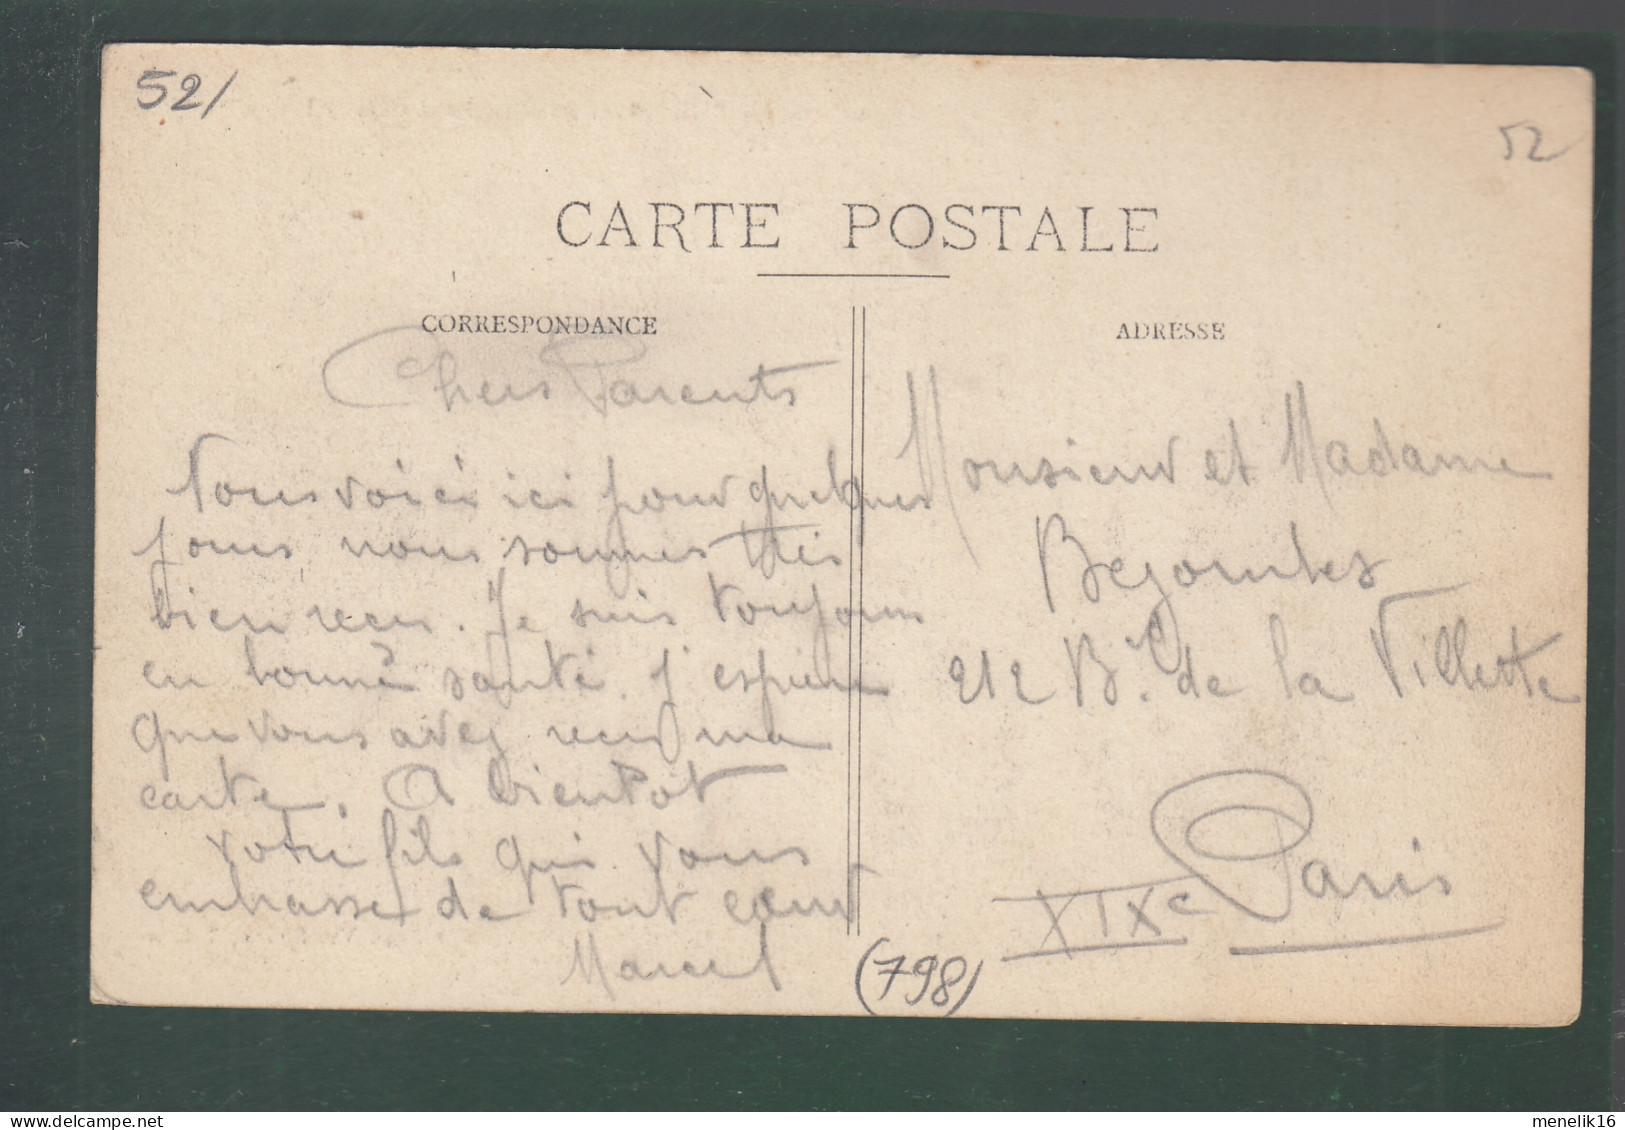 52/
52
CARTE POSTALE
CORRESPONDANCE
Chers Parents
Nous voici ici pour quelques
jours nous sommes très
bien recus. Je suis toujours
en bonne santé. J'espère
que vous avez recu ma
carte. A bientot
votre fils qui vous
embrasse de tout coeur
Marcel
(798)
ADRESSE
Monsieur et Madame
212 B.d de la Villette
Paris
XIXe
menelik16